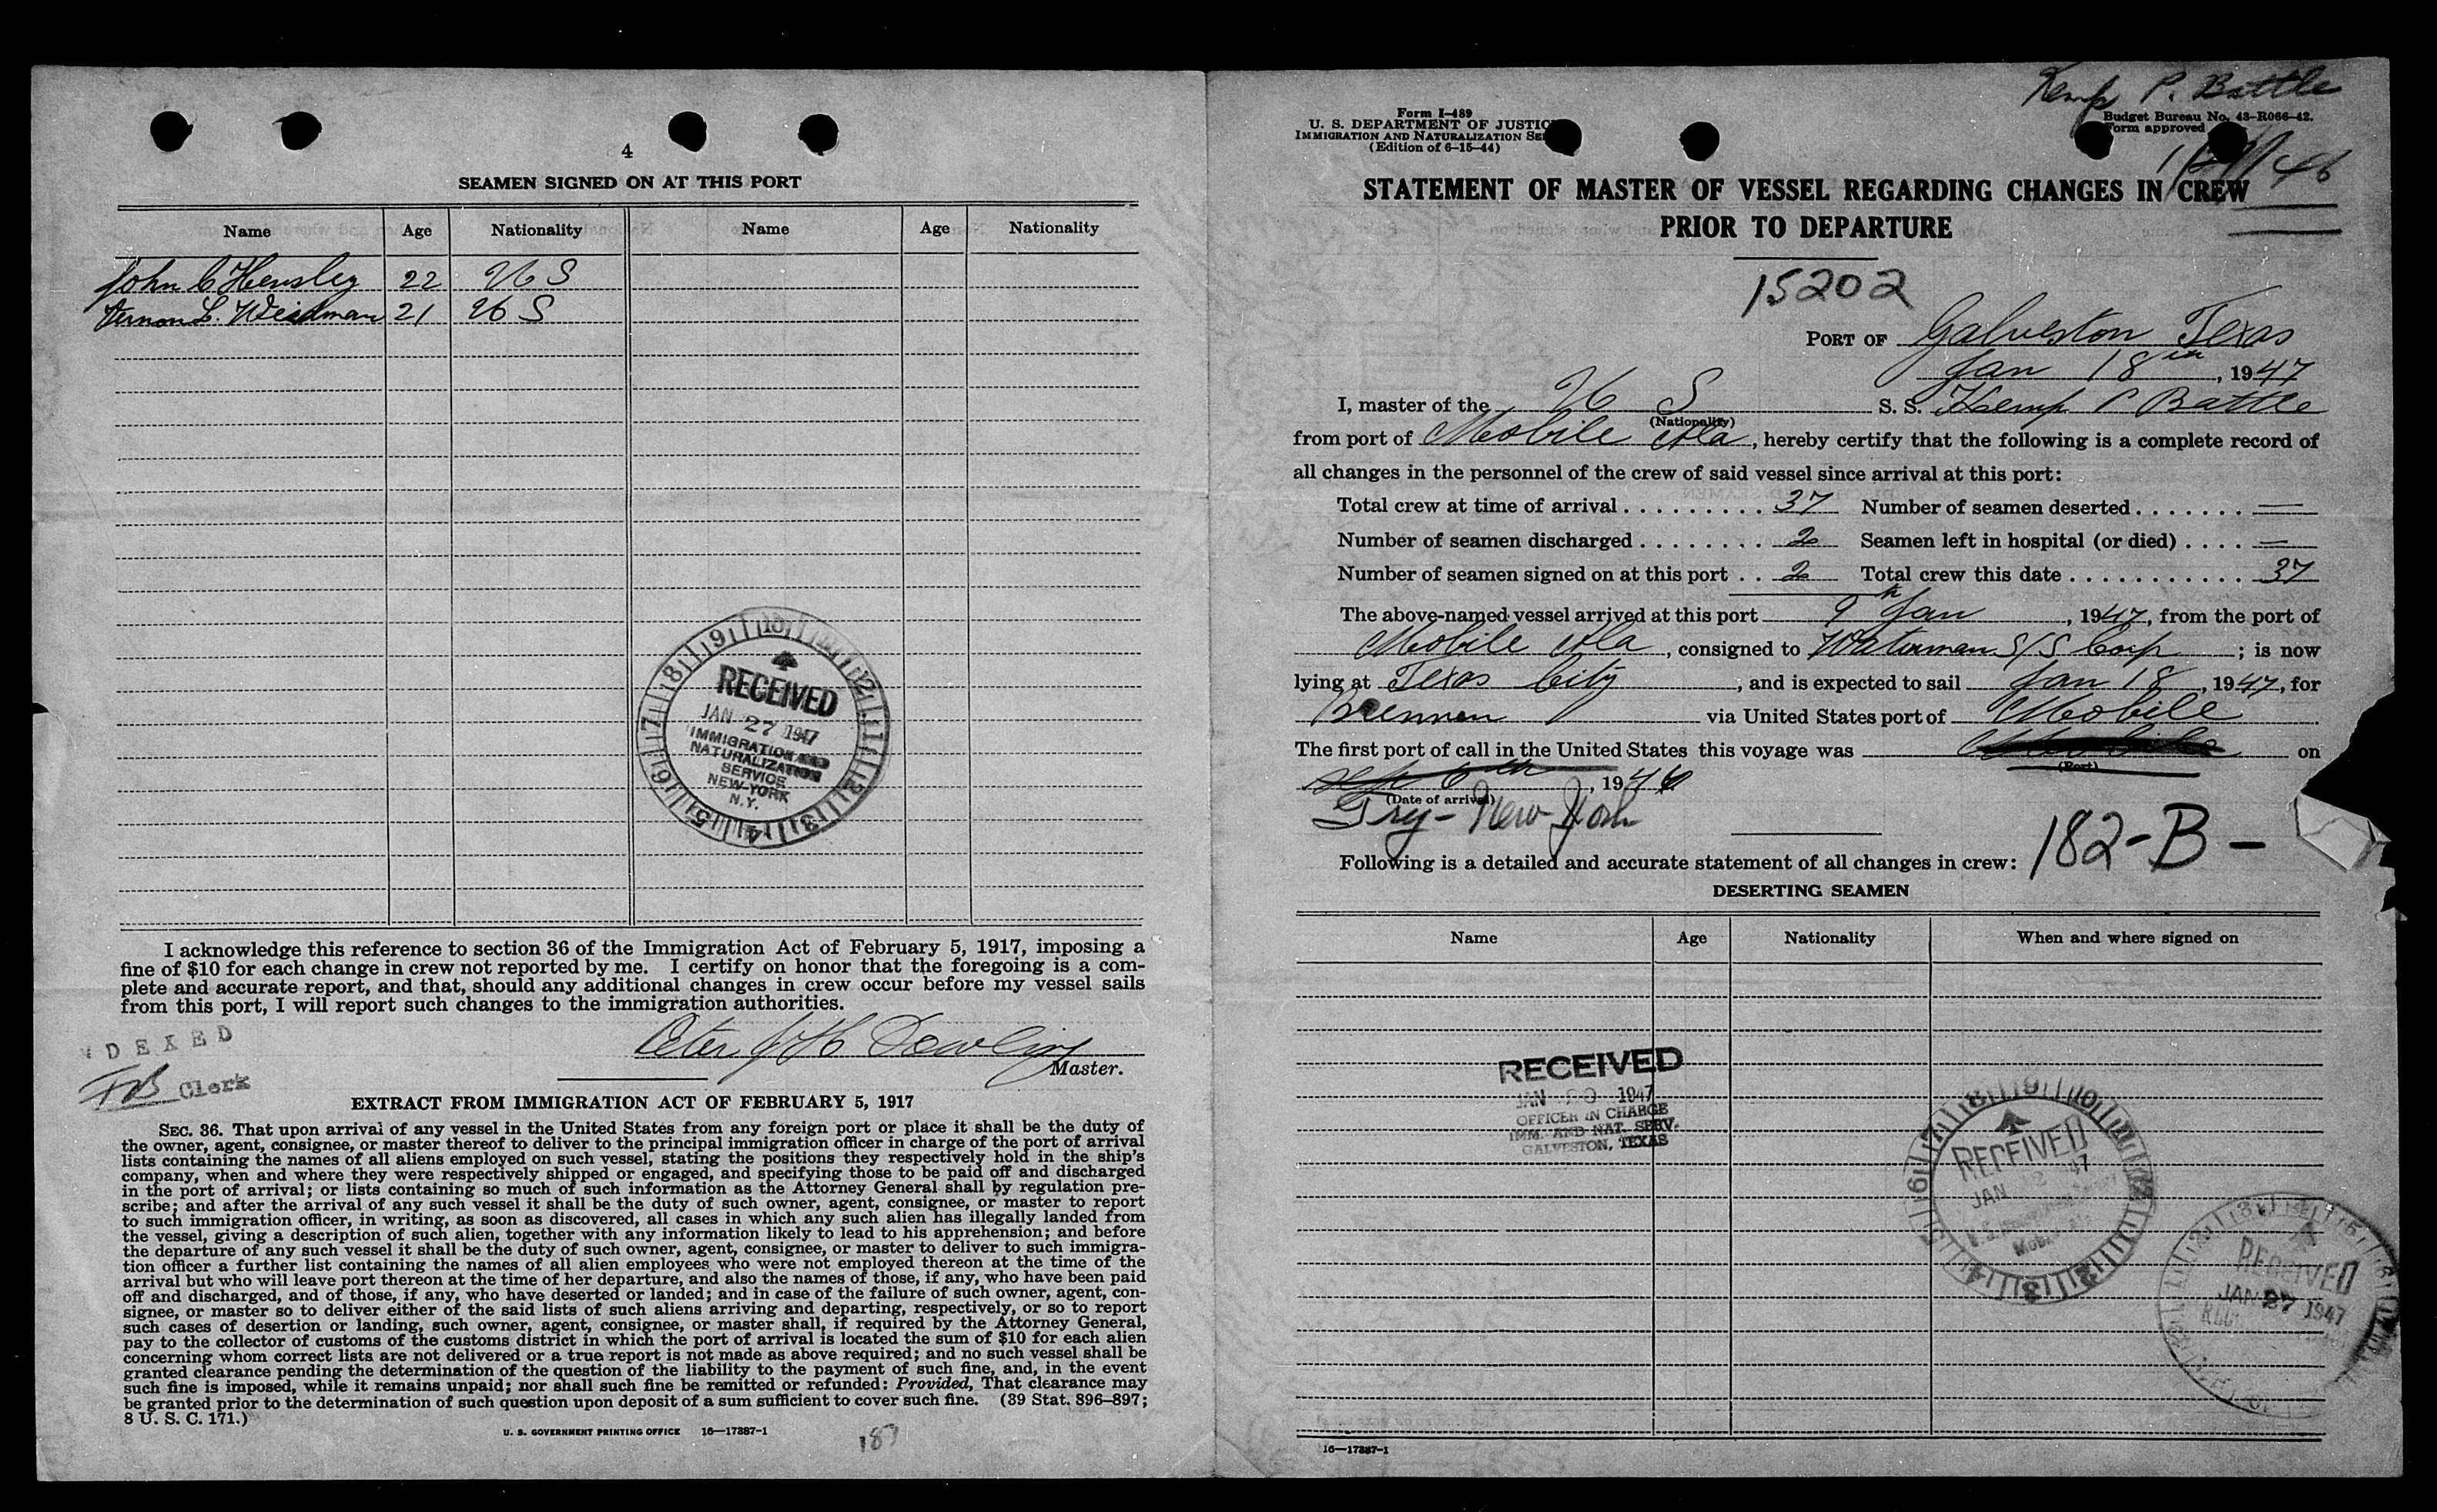 4
SEAMEN SIGNED ON AT THIS PORT
Name Age Nationality Name Age Nationality
John C Hensley 22 U S
Vernon L. Weidman 21 U S
RECEIVED
JAN 27 1947
IMMIGRATION AND
NATURALIZATION
SERVICE
NEW YORK
N.Y.
I acknowledge this reference to section 36 of the Immigration Act of February 5, 1917, imposing a
fine of $10 for each change in crew not reported by me. I certify on honor that the foregoing is a com-
plete and accurate report, and that, should any additional changes in crew occur before my vessel sails
from this port, I will report such changes to the immigration authorities.
NDEXED
Clerk
Peter J H Dowling
Master.
EXTRACT FROM IMMIGRATION ACT OF FEBRUARY 5, 1917
SEC. 36. That upon arrival of any vessel in the United States from any foreign port or place it shall be the duty of
the owner, agent, consignee, or master thereof to deliver to the principal immigration officer in charge of the port of arrival
lists containing the names of all aliens employed on such vessel, stating the positions they respectively hold in the ship's
company, when and where they were respectively shipped or engaged, and specifying those to be paid off and discharged
in the port of arrival; or lists containing so much of such information as the Attorney General shall by regulation pre-
scribe; and after the arrival of any such vessel it shall be the duty of such owner, agent, consignee, or master to report
to such immigration officer, in writing, as soon as discovered, all cases in which any such alien has illegally landed from
the vessel, giving a description of such alien, together with any information likely to lead to his apprehension; and before
the departure of any such vessel it shall be the duty of such owner, agent, consignee, or master to deliver to such immigra-
tion officer a further list containing the names of all alien employees who were not employed thereon at the time of the
arrival but who will leave port thereon at the time of her departure, and also the names of those, if any, who have been paid
off and discharged, and of those, if any, who have deserted or landed; and in case of the failure of such owner, agent, con-
signee, or master so to deliver either of the said lists of such aliens arriving and departing, respectively, or so to report
such cases of desertion or landing, such owner, agent, consignee, or master shall, if required by the Attorney General,
pay to the collector of customs of the customs district in which the port of arrival is located the sum of $10 for each alien
concerning whom correct lists are not delivered or a true report is not made as above required; and no such vessel shall be
granted clearance pending the determination of the question of the liability to the payment of such fine, and, in the event
such fine is imposed, while it remains unpaid; nor shall such fine be remitted or refunded: Provided, That clearance may
be granted prior to the determination of such question upon deposit of a sum sufficient to cover such fine. (39 Stat. 896–897;
8 U. S. C. 171.)
U. S. GOVERNMENT PRINTING OFFICE 16—17387-1
187
Kemp P. Battle
Form I-489
U. S. DEPARTMENT OF JUSTIC
IMMIGRATION AND NATURALIZATION SE
(Edition of 6-15-44)
Budget Bureau No. 43-R066-42.
Form approved
STATEMENT OF MASTER OF VESSEL REGARDING CHANGES IN CREW
PRIOR TO DEPARTURE
15202
PORT OF Galveston Texas
Jan 18th, 1947
I, master of the U S S. S. Kemp P Battle
(Nationality)
from port of Mobile Ala, hereby certify that the following is a complete record of
all changes in the personnel of the crew of said vessel since arrival at this port:
Total crew at time of arrival . . . . . . . . . 37 Number of seamen deserted . . . . . . . —
Number of seamen discharged . . . . . . . . 2 Seamen left in hospital (or died) . . . . —
Number of seamen signed on at this port . . 2 Total crew this date . . . . . . . . . . . . 37
The above-named vessel arrived at this port 9th Jan, 1947, from the port of
Mobile Ala, consigned to Waterman S/S Corp; is now
lying at Texas City, and is expected to sail Jan 18, 1947, for
Bremen via United States port of Mobile
The first port of call in the United States this voyage was Mobile on
(Port)
Sep 6th, 1946
(Date of arrival)
Try - New York
182-B-
Following is a detailed and accurate statement of all changes in crew:
DESERTING SEAMEN
Name Age Nationality When and where signed on
RECEIVED
JAN 20 1947
OFFICER IN CHARGE
IMM. AND NAT. SERV.
GALVESTON, TEXAS
RECEIVED
JAN 2 47
RECEIVED
JAN 27 1947
16—17387-1